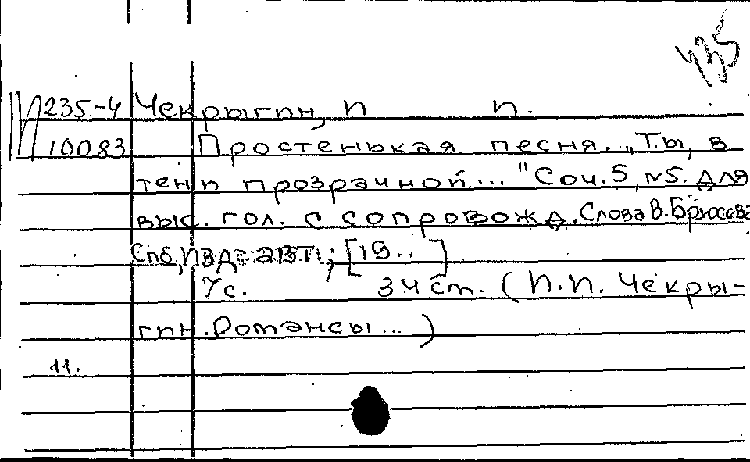 435
М235-4 Чекрыгин, П П.
10083 Простенькая песня. „Ты, в
тени прозрачной... " Соч. 5, №5. Для
выс. гол. с сопровожд. Слова В. Брюсова
Спб, изд. авт., [19.. ]
7с. 34 см. (П.П. Чекры-
гин. Романсы... )
11.